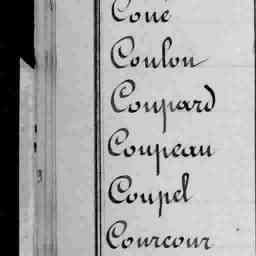 Coué
Coulon
Coupard
Coupeau
3
Coupel
Courcour